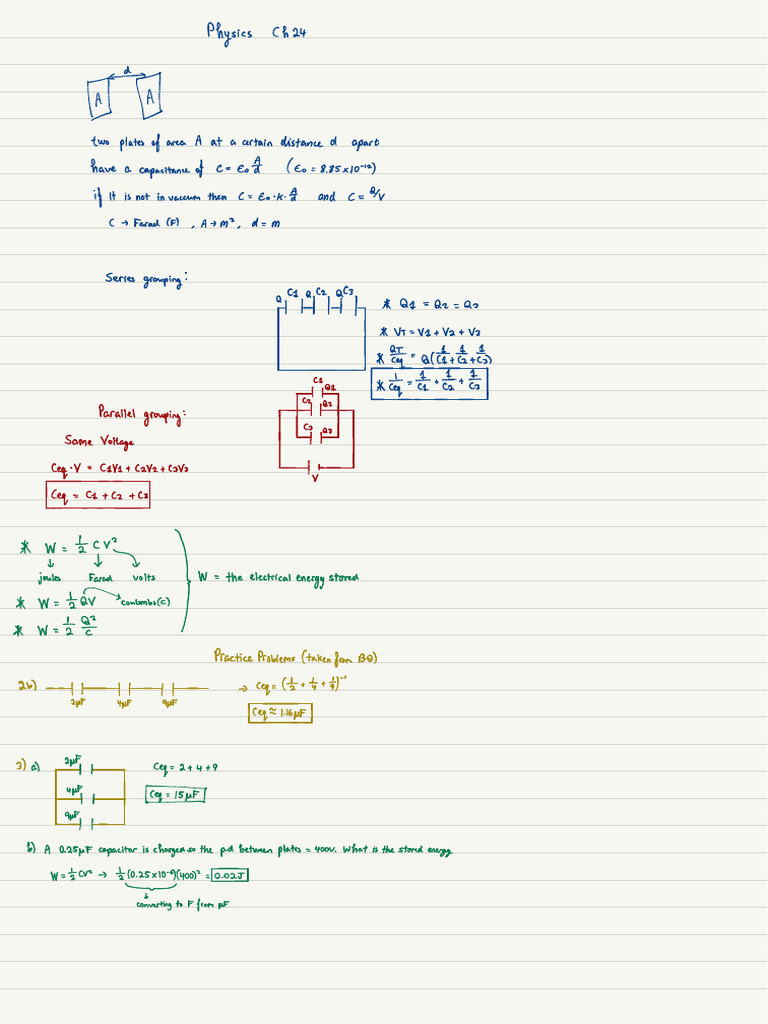 Physics Ch 24
d
A A
two plates of area A at a certain distance d apart
have a capacitance of C = ε0 A/d (ε0 = 8.85 x 10^-12)
if It is not in vacuum then C = ε0 · k · A/d and C = Q/V
C → Farad (F) , A → m², d = m
Series grouping:
Q C1 Q C2 Q C3
* Q1 = Q2 = Q3
* VT = V1 + V2 + V3
* QT/Ceq = Q(1/C1 + 1/C2 + 1/C3)
* 1/Ceq = 1/C1 + 1/C2 + 1/C3
Parallel grouping:
Same Voltage
Ceq · V = C1V1 + C2V2 + C3V3
Ceq = C1 + C2 + C3
C1 Q1
C2 Q2
C3 Q3
V
* W = 1/2 C V²
↓ ↓ ↘
joules Farad volts
* W = 1/2 QV → coulombs (C)
* W = 1/2 Q²/C
W = the electrical energy stored
Practice Problems (taken from BQ)
2b)
2μF 4μF 9μF
→ Ceq = (1/2 + 1/4 + 1/9)^-1
Ceq ≈ 1.16μF
3) a)
2μF
4μF
9μF
Ceq = 2 + 4 + 9
Ceq = 15μF
b) A 0.25μF capacitor is charged so the p.d between plates = 400V. What is the stored energy
W = 1/2 CV² → 1/2 (0.25 x 10^-6)(400)² = 0.02J
converting to F from μF